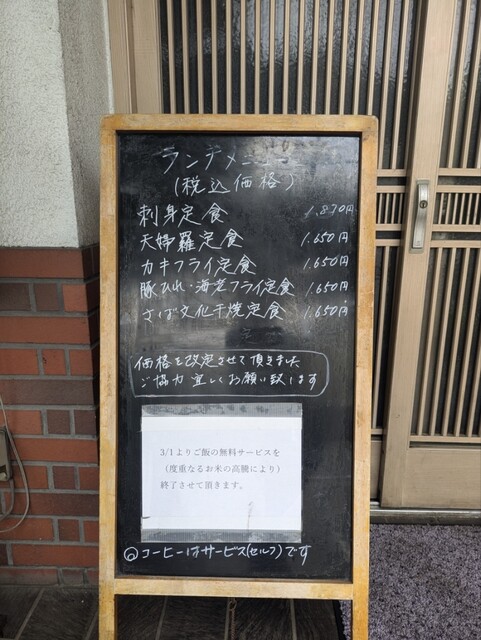 ランチメニュー
(税込価格)
刺身定食 1,870円
天婦羅定食 1,650円
カキフライ定食 1,650円
豚ひれ・海老フライ定食 1,650円
さば文化干焼定食 1,650円
価格を改定させて頂きました
ご協力宜しくお願い致します
3/1よりご飯の無料サービスを
(度重なるお米の高騰により)
終了させて頂きます。
◎コーヒーはサービス(セルフ)です